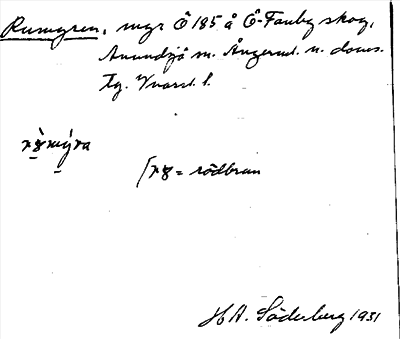 Rumyren, myr Ö 185 å Ö-Fanby skog,
Anundsjö sn. Ångerml. n. doms.
tg. Vnorrl. l.
[ry = rödbrun
H A. Söderberg 1931